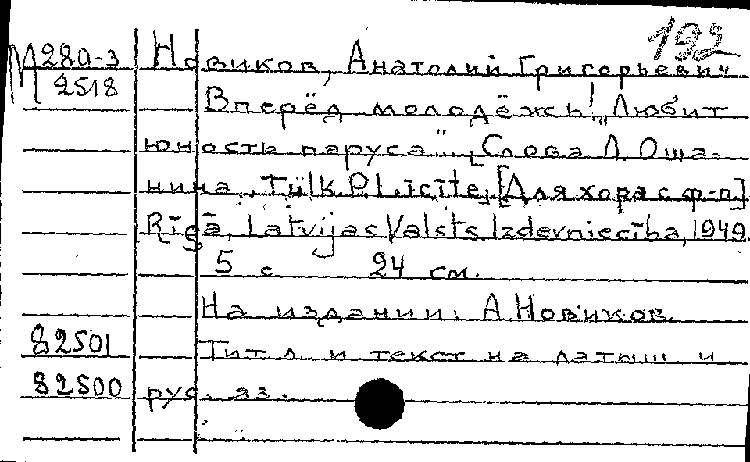 192
М 280-3 Новиков, Анатолий Григорьевич
2518 Вперёд молодёжь! „Любит
юность паруса". [Слова Л. Оша-
нина, Tulk. P. Līcīte, [Для хора с ф-п]
Rīgā, Latvijas Valsts Izdevniecība, 1949.
5 с 24 см.
На издании: А. Новиков.
82501 Тит л и текст на латыш и
82500 рус. яз.